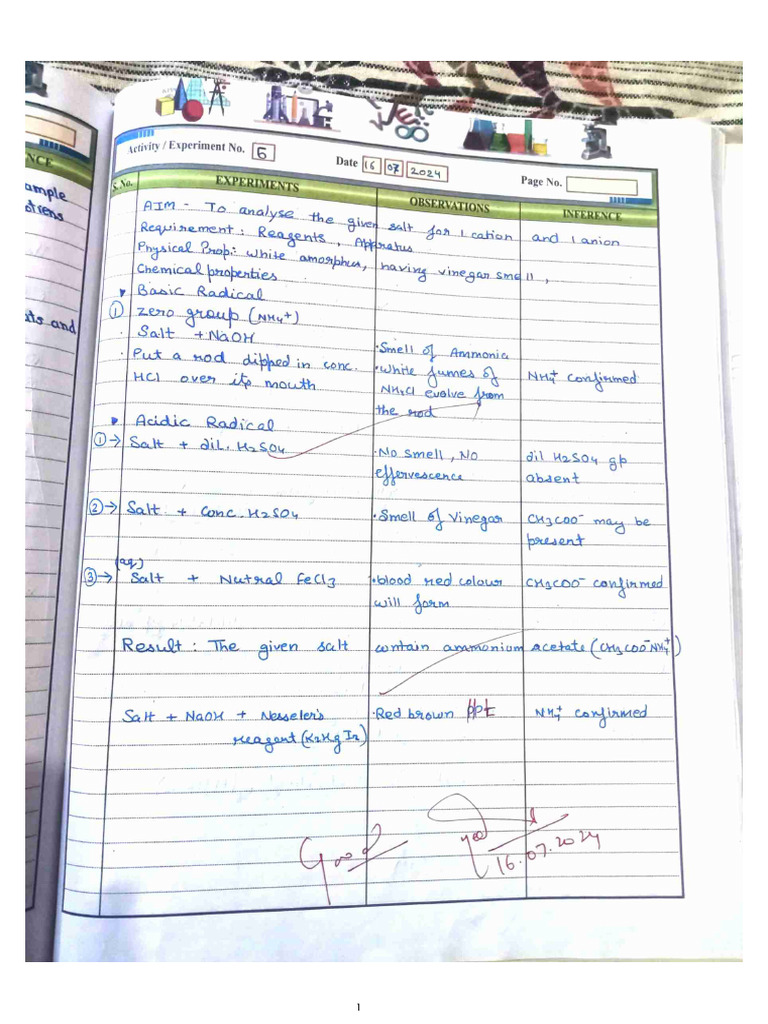 NCE
ample
otrens
ts and
Activity / Experiment No. 5
Date 16 07 2024
Page No.
S. No. EXPERIMENTS OBSERVATIONS INFERENCE
AIM - To analyse the given salt for 1 cation and 1 anion
Requirement : Reagents , Apparatus
Physical Prop: White amorphus, having vinegar smell,
Chemical properties
Basic Radical
① Zero group (NH4+)
Salt + NaOH · Smell of Ammonia
· Put a rod dipped in conc. · White fumes of NH4+ confirmed
HCl over its mouth NH4Cl evolve from
the rod
Acidic Radical
①→ Salt + dil. H2SO4 · No smell, No dil H2SO4 gp
effervescence absent
②→ Salt + Conc. H2SO4 · Smell of Vinegar CH3COO- may be
present
(aq)
③→ Salt + Nutral FeCl3 · blood red colour CH3COO- confirmed
will form
Result : The given salt contain ammonium acetate (CH3COO-NH4+)
Salt + NaOH + Nesseler's · Red brown ppt NH4+ confirmed
reagent (K2HgI2)
Good
16.07.2024
1